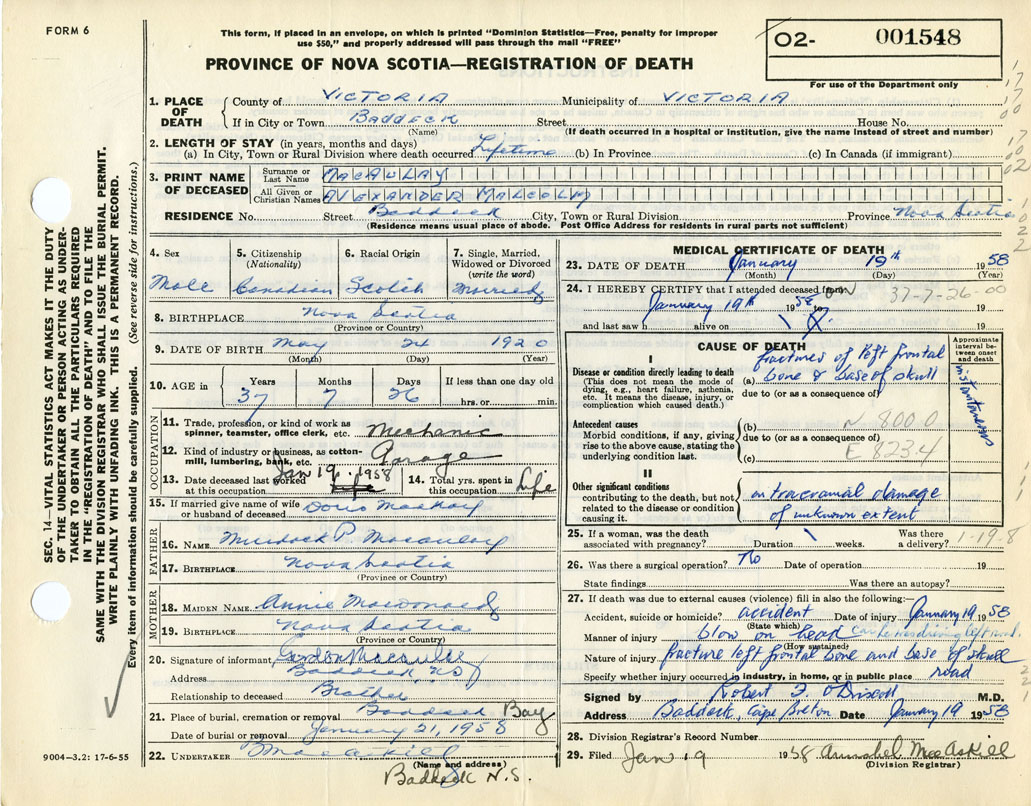 FORM 6
This form, if placed in an envelope, on which is printed "Dominion Statistics—Free, penalty for improper
use $50," and properly addressed will pass through the mail "FREE"
PROVINCE OF NOVA SCOTIA—REGISTRATION OF DEATH
02- 001548
For use of the Department only
SEC. 14—VITAL STATISTICS ACT MAKES IT THE DUTY
OF THE UNDERTAKER OR PERSON ACTING AS UNDER-
TAKER TO OBTAIN ALL THE PARTICULARS REQUIRED
IN THE "REGISTRATION OF DEATH" AND TO FILE THE
SAME WITH THE DIVISION REGISTRAR WHO SHALL ISSUE THE BURIAL PERMIT.
WRITE PLAINLY WITH UNFADING INK. THIS IS A PERMANENT RECORD.
Every item of information should be carefully supplied. (See reverse side for instructions.)
1. PLACE OF DEATH
County of VICTORIA Municipality of VICTORIA
If in City or Town BADDECK Street House No.
(Name) (If death occurred in a hospital or institution, give the name instead of street and number)
2. LENGTH OF STAY (in years, months and days)
(a) In City, Town or Rural Division where death occurred Lifetime (b) In Province (c) In Canada (if immigrant)
3. PRINT NAME OF DECEASED
Surname or Last Name MACAULAY
All Given or Christian Names ALEXANDER MALCOLM
RESIDENCE No. Street Baddeck City, Town or Rural Division Province Nova Scotia
(Residence means usual place of abode. Post Office Address for residents in rural parts not sufficient)
4. Sex
Male
5. Citizenship
(Nationality)
Canadian
6. Racial Origin
Scotch
7. Single, Married, Widowed or Divorced
(write the word)
Married
8. BIRTHPLACE Nova Scotia
(Province or Country)
9. DATE OF BIRTH May 24 1920
(Month) (Day) (Year)
10. AGE in Years Months Days If less than one day old
37 7 26 hrs. or min.
OCCUPATION
11. Trade, profession, or kind of work as
spinner, teamster, office clerk, etc. Mechanic
12. Kind of industry or business, as cotton-
mill, lumbering, bank, etc. Garage
13. Date deceased last worked
at this occupation Jan 19, 1958
14. Total yrs. spent in
this occupation Life
15. If married give name of wife
or husband of deceased Doris
FATHER
16. NAME Murdock P. Macaulay
17. BIRTHPLACE Nova Scotia
(Province or Country)
MOTHER
18. MAIDEN NAME Annie Macdonald
19. BIRTHPLACE Nova Scotia
(Province or Country)
20. Signature of informant Gordon Macaulay
Address Baddeck NS
Relationship to deceased Brother
21. Place of burial, cremation or removal Baddeck Bay
Date of burial or removal January 21, 1958
22. UNDERTAKER MacAskill
(Name and address)
Baddeck N.S.
9004—3.2: 17-6-55
MEDICAL CERTIFICATE OF DEATH
23. DATE OF DEATH January 19th 1958
(Month) (Day) (Year)
24. I HEREBY CERTIFY that I attended deceased from on 37-7-26-00
January 19th 1958 to 19
and last saw h alive on 19
CAUSE OF DEATH
Approximate interval between onset and death
I
Disease or condition directly leading to death
(This does not mean the mode of
dying, e.g., heart failure, asthenia,
etc. It means the disease, injury, or
complication which caused death.)
(a) fractures of left frontal
bone & base of skull
due to (or as a consequence of)
instantaneous
Antecedent causes
Morbid conditions, if any, giving
rise to the above cause, stating the
underlying condition last.
(b) N 800.0
due to (or as a consequence of)
(c) E 823.4
II
Other significant conditions
contributing to the death, but not
related to the disease or condition
causing it.
intracranial damage
of unknown extent
25. If a woman, was the death
associated with pregnancy? Duration weeks. Was there
a delivery? 1-19-8
26. Was there a surgical operation? No Date of operation 19
State findings Was there an autopsy?
27. If death was due to external causes (violence) fill in also the following:
Accident, suicide or homicide? accident Date of injury January 19 1958
(State which)
Manner of injury blow on head car he was driving left road.
(How sustained)
Nature of injury fracture left frontal bone and base of skull
Specify whether injury occurred in industry, in home, or in public place road
Signed by Robert F. O'Driscoll M.D.
Address Baddeck, Cape Breton Date January 19 1958
28. Division Registrar's Record Number
29. Filed Jan 19 1958 Annabel MacAskill
(Division Registrar)